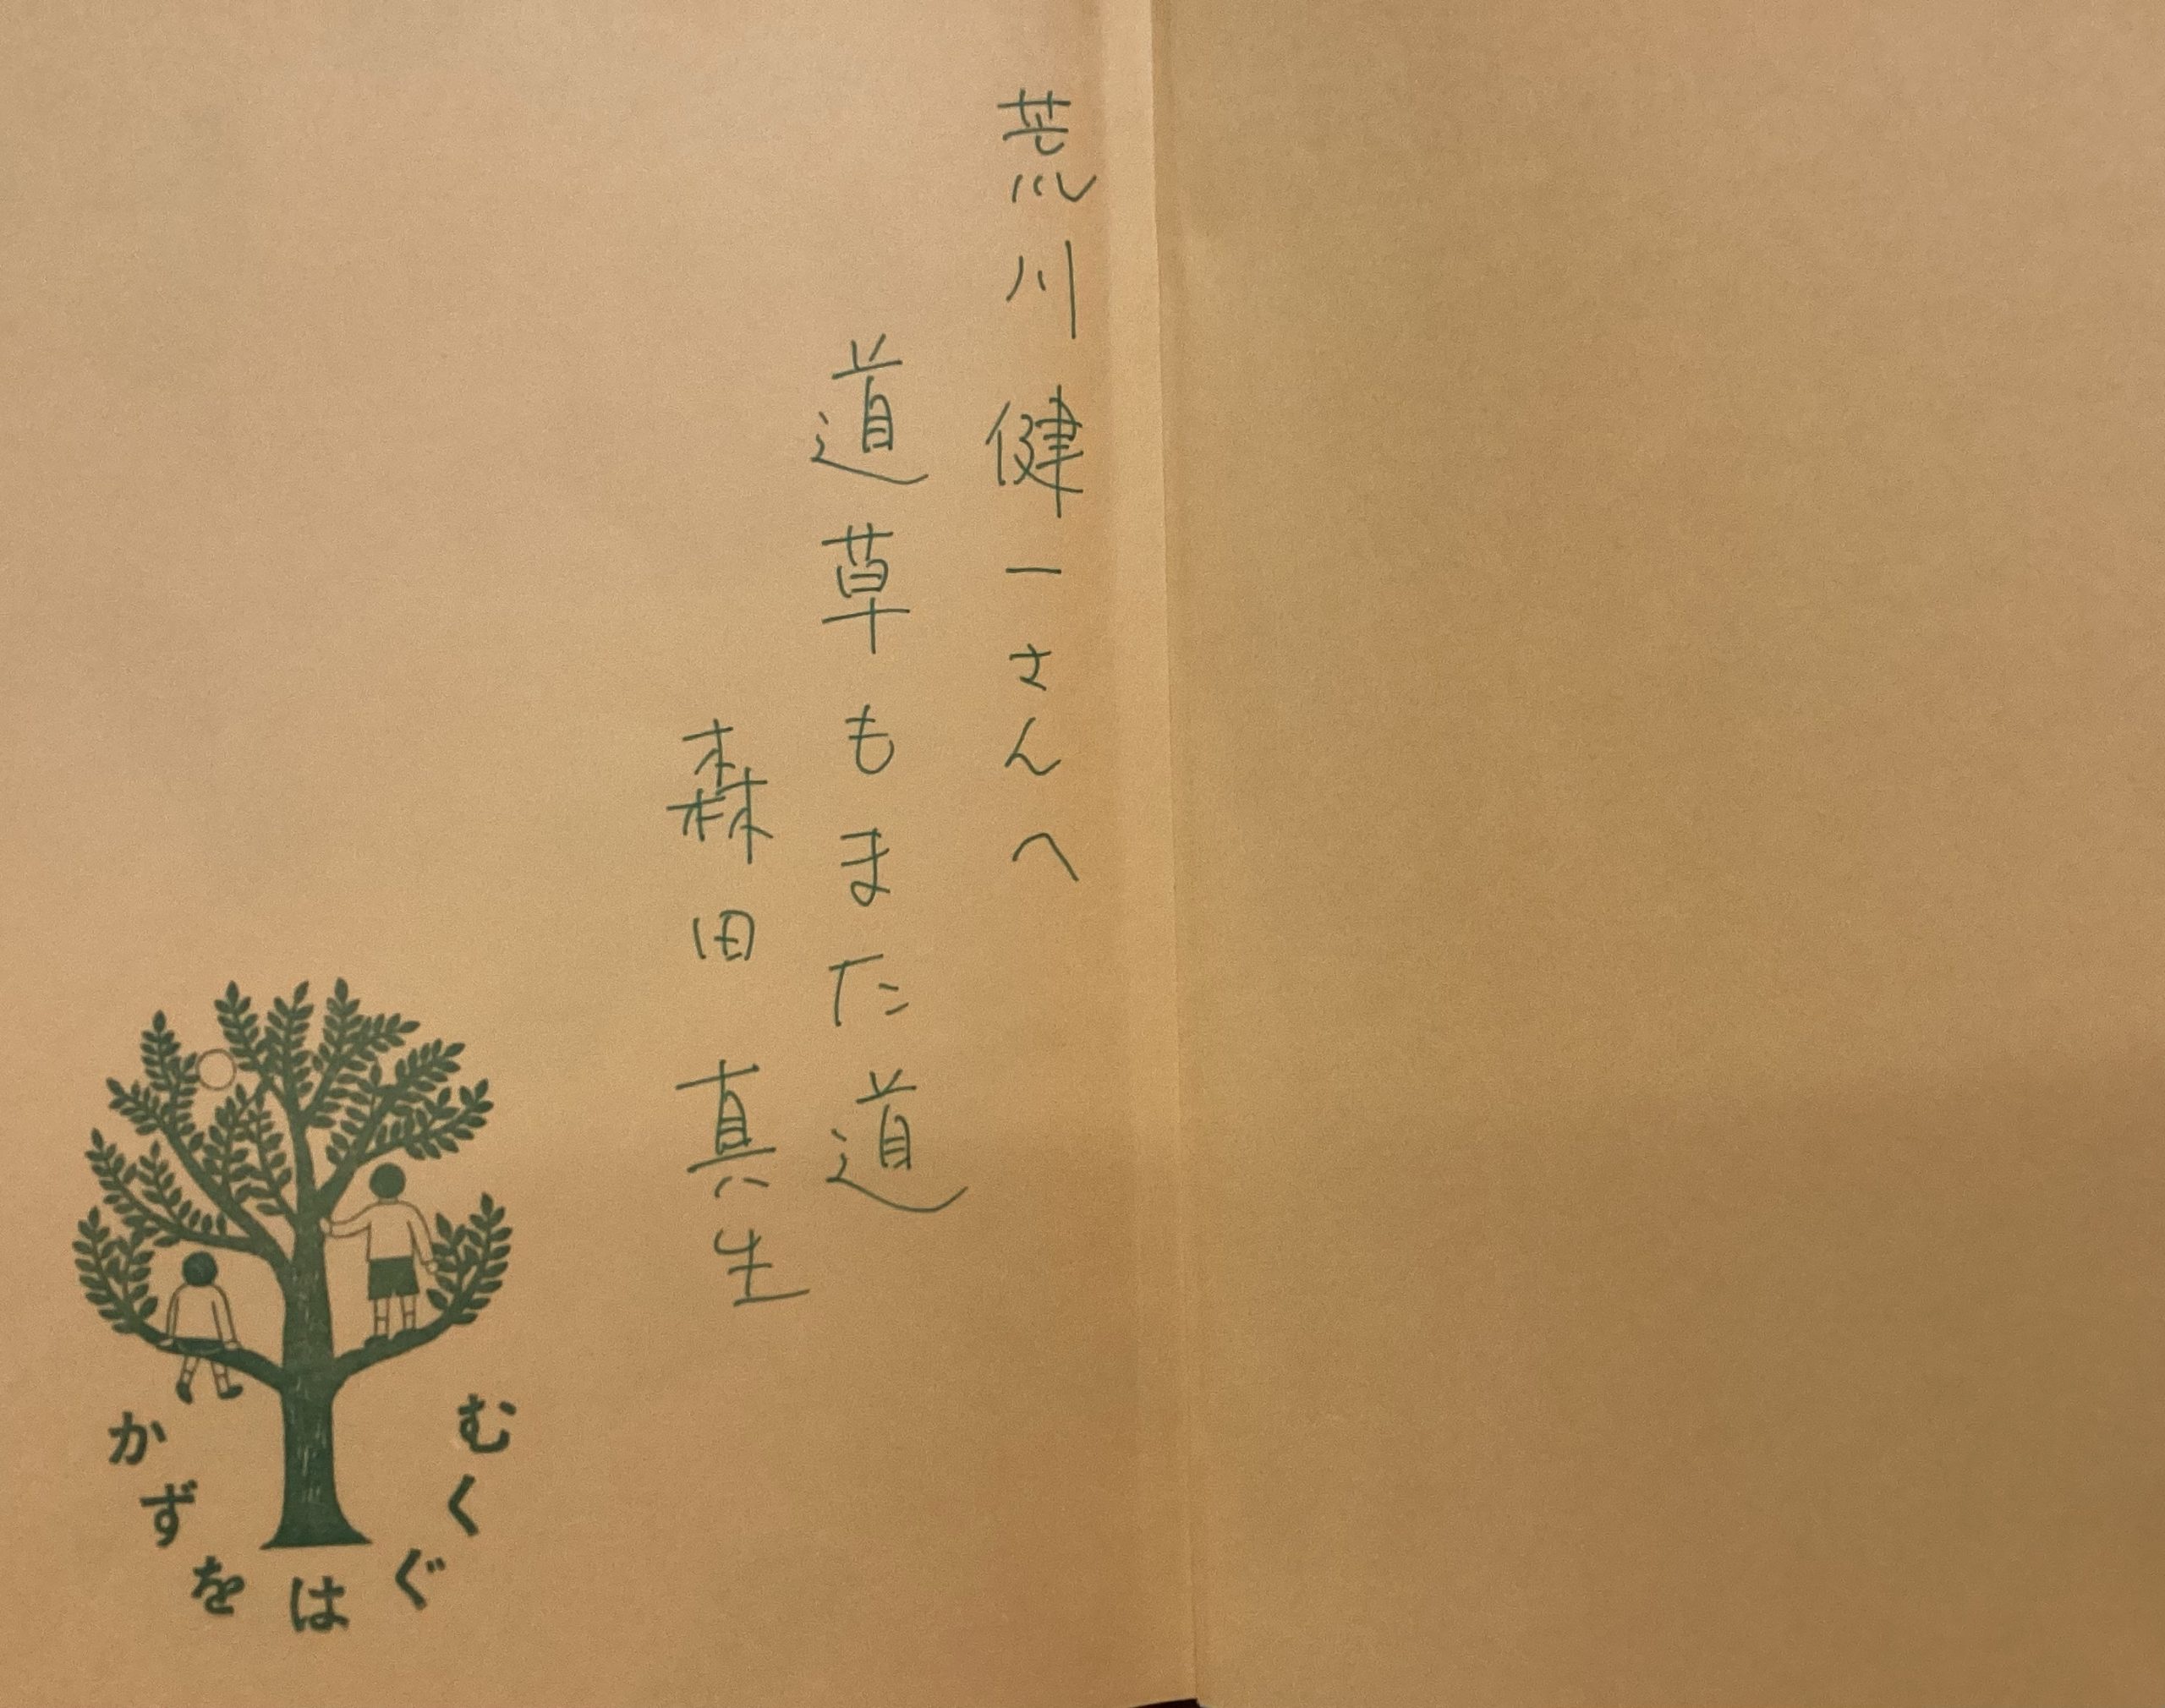 荒川健一さんへ
道草もまた道
森田真生
かずをはぐくむ